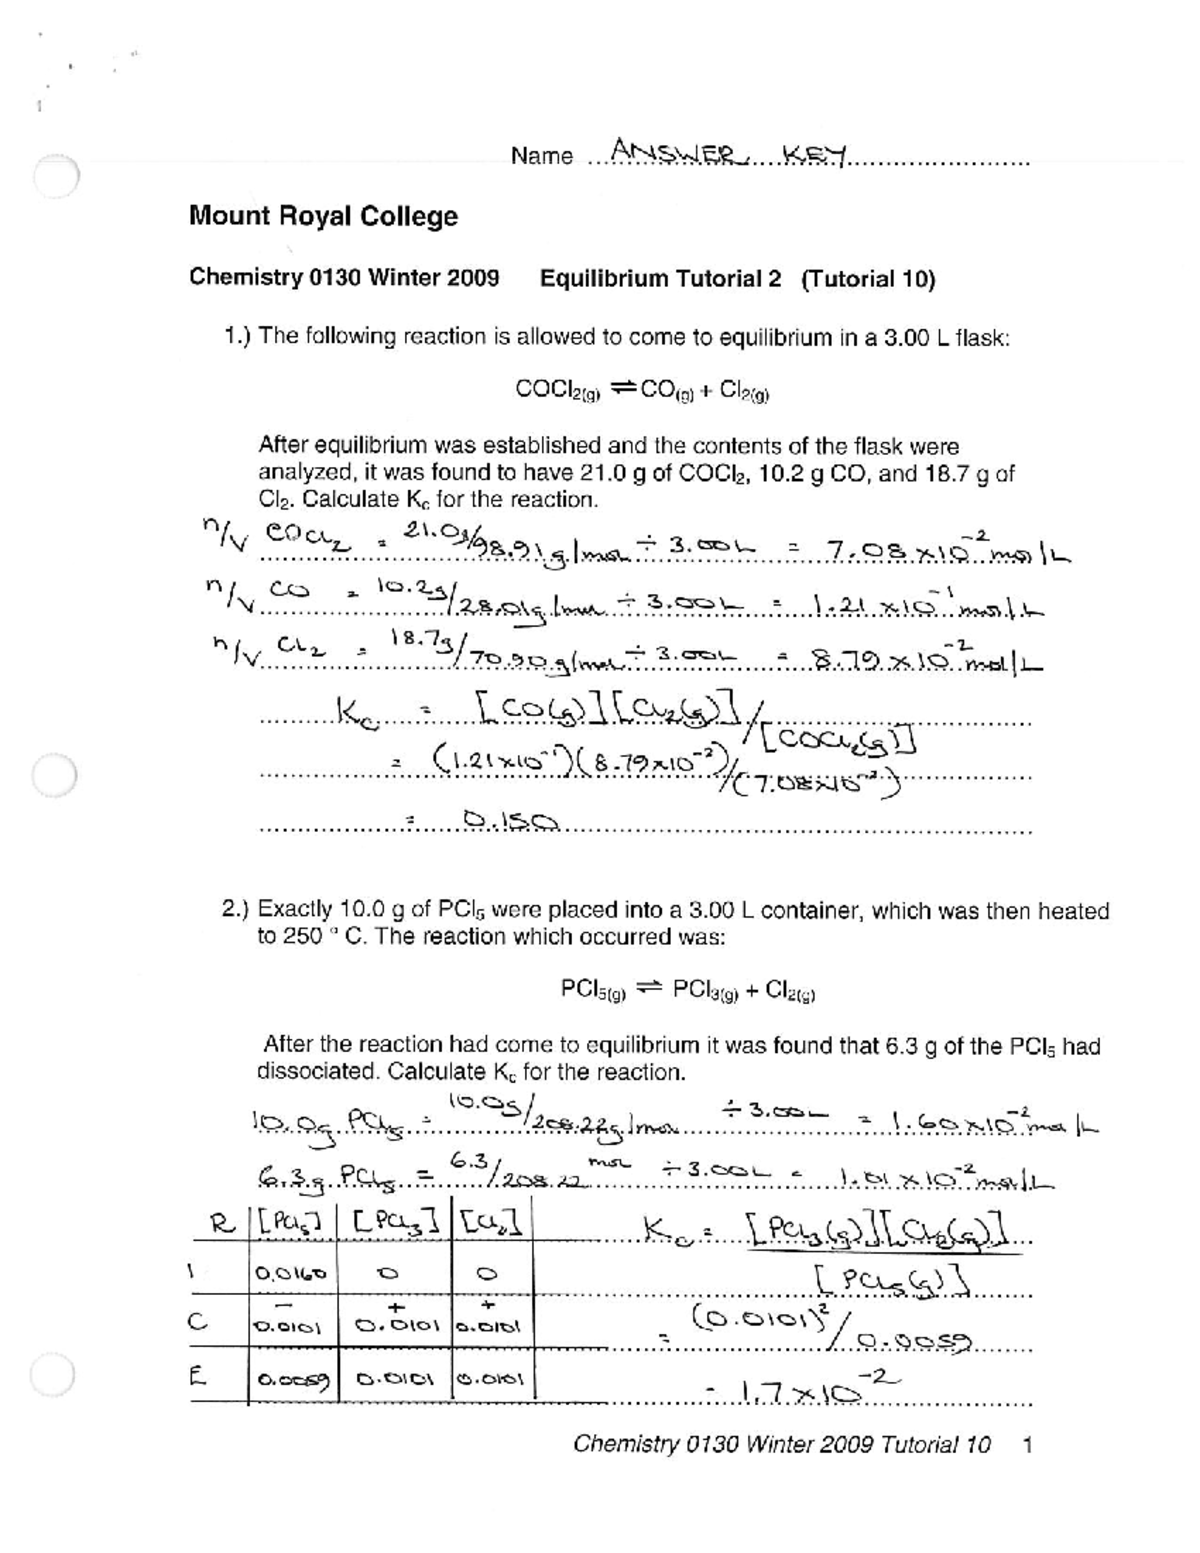 Name ANSWER KEY
Mount Royal College
Chemistry 0130 Winter 2009 Equilibrium Tutorial 2 (Tutorial 10)
1.) The following reaction is allowed to come to equilibrium in a 3.00 L flask:
COCl₂(g) ⇌ CO(g) + Cl₂(g)
After equilibrium was established and the contents of the flask were
analyzed, it was found to have 21.0 g of COCl₂, 10.2 g CO, and 18.7 g of
Cl₂. Calculate Kc for the reaction.
n/V COCl₂ = 21.0g/98.91g/mol ÷ 3.00L = 7.08 x10⁻² mol/L
n/V CO = 10.2g/28.01g/mol ÷ 3.00L = 1.21 x10⁻¹ mol/L
n/V Cl₂ = 18.7g/70.90g/mol ÷ 3.00L = 8.79 x10⁻² mol/L
Kc = [CO(g)][Cl₂(g)]/[COCl₂(g)]
= (1.21x10⁻¹)(8.79x10⁻²)/(7.08x10⁻²)
= 0.150
2.) Exactly 10.0 g of PCl₅ were placed into a 3.00 L container, which was then heated
to 250 ° C. The reaction which occurred was:
PCl₅(g) ⇌ PCl₃(g) + Cl₂(g)
After the reaction had come to equilibrium it was found that 6.3 g of the PCl₅ had
dissociated. Calculate Kc for the reaction.
10.0g PCl₅ = 10.0g/208.22g/mol ÷ 3.00L = 1.60x10⁻² mol/L
6.3g PCl₅ = 6.3/208.22 mol ÷ 3.00L = 1.01 x10⁻² mol/L
R [PCl₅] [PCl₃] [Cl₂] Kc = [PCl₃(g)][Cl₂(g)]
I 0.0160 0 0 [PCl₅(g)]
C - 0.0101 + 0.0101 + 0.0101 = (0.0101)²/0.0059
E 0.0059 0.0101 0.0101 = 1.7x10⁻²
Chemistry 0130 Winter 2009 Tutorial 10 1